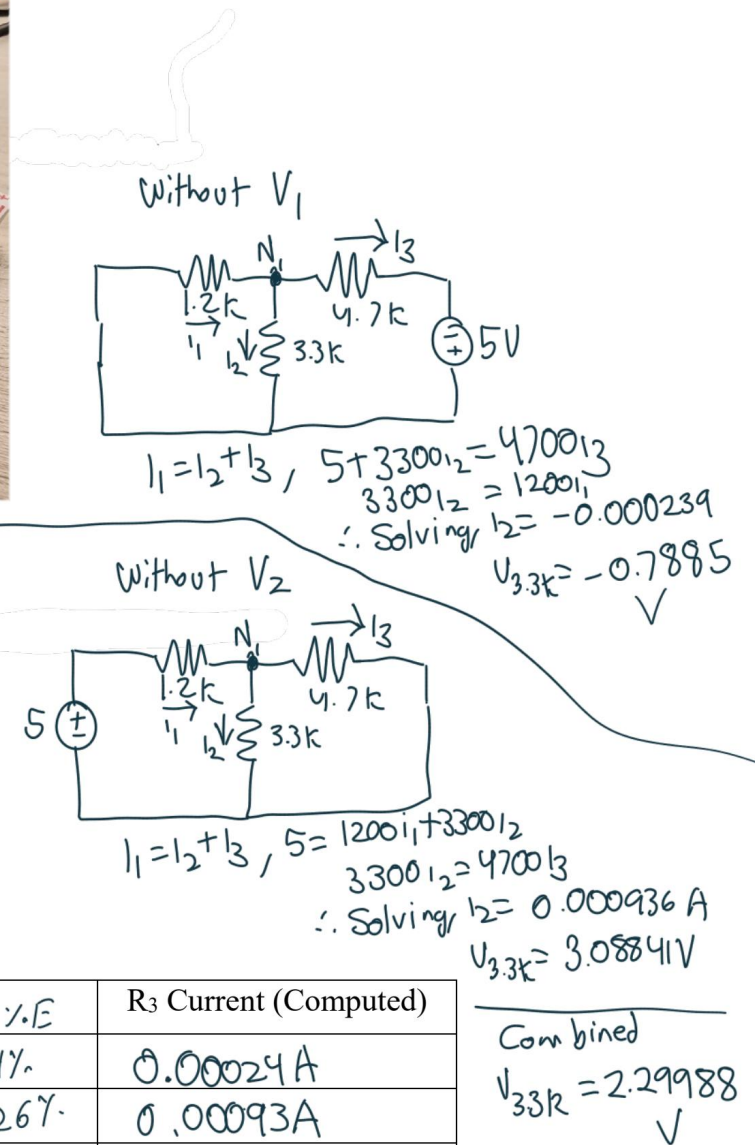 Without V₁
N₁
I₃
1.2K
4.7K
I₁
I₂
3.3K
5V
I₁ = I₂ + I₃, 5 + 3300I₂ = 4700I₃
3300I₂ = 1200I₁
∴ Solving, I₂ = -0.000239
V₃.₃ₖ = -0.7885
V
Without V₂
N₁
I₃
1.2K
4.7K
5
I₁
I₂
3.3K
I₁ = I₂ + I₃, 5 = 1200i₁ + 3300I₂
3300I₂ = 4700I₃
∴ Solving, I₂ = 0.000936 A
V₃.₃ₖ = 3.08841V
%E
R₃ Current (Computed)
0.00024A
26%.
0.00093A
Combined
V₃₃ₖ = 2.29988
V